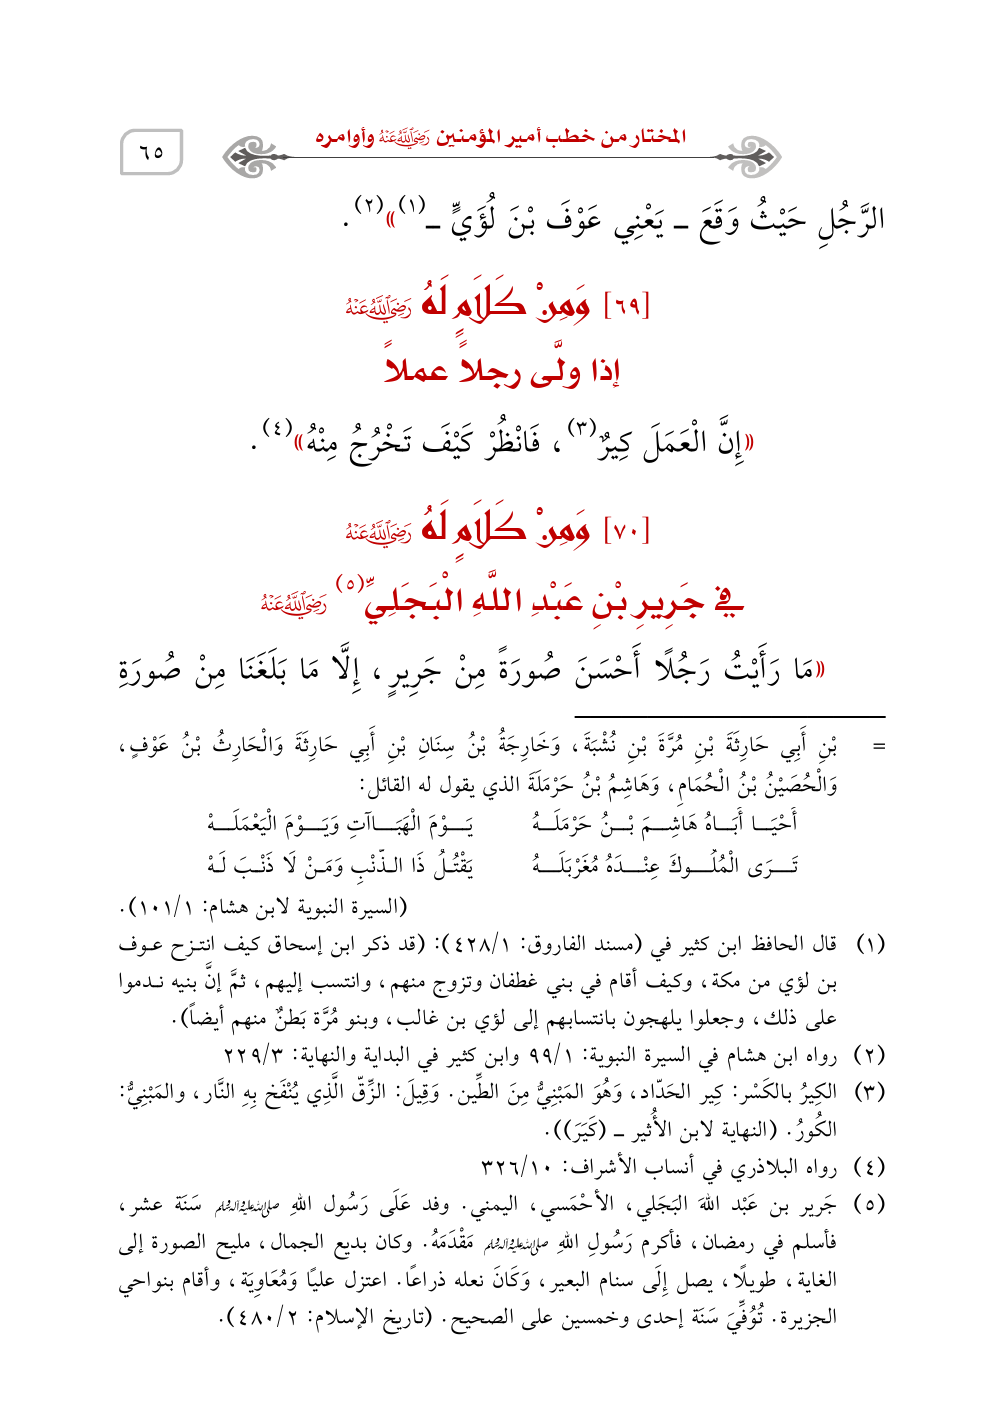 المختار من خطب أمير المؤمنين رَضِيَ اللَّهُ عَنْهُ وأوامره
٦٥
الرَّجُلِ حَيْثُ وَقَعَ ـ يَعْنِي عَوْفَ بْنَ لُؤَيٍّ ـ(١)»(٢).
[٦٩] وَمِنْ كَلَامٍ لَهُ رَضِيَ اللَّهُ عَنْهُ
إذا ولَّى رجلاً عملاً
«إِنَّ الْعَمَلَ كِيرٌ(٣)، فَانْظُرْ كَيْفَ تَخْرُجُ مِنْهُ»(٤).
[٧٠] وَمِنْ كَلَامٍ لَهُ رَضِيَ اللَّهُ عَنْهُ
في جَرِيرِ بْنِ عَبْدِ اللَّهِ الْبَجَلِيِّ(٥) رَضِيَ اللَّهُ عَنْهُ
«مَا رَأَيْتُ رَجُلًا أَحْسَنَ صُورَةً مِنْ جَرِيرٍ، إِلَّا مَا بَلَغَنَا مِنْ صُورَةِ
= بْنِ أَبِي حَارِثَةَ بْنِ مُرَّةَ بْنِ نُشْبَةَ، وَخَارِجَةُ بْنُ سِنَانِ بْنِ أَبِي حَارِثَةَ وَالْحَارِثُ بْنُ عَوْفٍ،
وَالْحُصَيْنُ بْنُ الْحُمَامِ، وَهَاشِمُ بْنُ حَرْمَلَةَ الذي يقول له القائل:
أَحْيَـا أَبَـاهُ هَاشِـمَ بْـنُ حَرْمَلَـهُ يَـوْمَ الْهَبَـاآتِ وَيَـوْمَ الْيَعْمَلَـهْ
تَـرَى الْمُلُـوكَ عِنْـدَهُ مُغَرْبَلَـهُ يَقْتُـلُ ذَا الـذَّنْبِ وَمَـنْ لَا ذَنْـبَ لَـهْ
(السيرة النبوية لابن هشام: ١٠١/١).
(١) قال الحافظ ابن كثير في (مسند الفاروق: ٤٢٨/١): (قد ذكر ابن إسحاق كيف انتـزح عـوف
بن لؤي من مكة، وكيف أقام في بني غطفان وتزوج منهم، وانتسب إليهم، ثمَّ إنَّ بنيه نـدموا
على ذلك، وجعلوا يلهجون بانتسابهم إلى لؤي بن غالب، وبنو مُرَّة بَطنٌ منهم أيضاً).
(٢) رواه ابن هشام في السيرة النبوية: ٩٩/١ وابن كثير في البداية والنهاية: ٢٢٩/٣
(٣) الكِيرُ بالكَسْر: كِير الحَدّاد، وَهُوَ المَبْنِيُّ مِنَ الطِّين. وَقِيلَ: الزِّقّ الَّذِي يُنْفَخ بِهِ النَّار، والمَبْنِيُّ:
الكُورُ. (النهاية لابن الأُثير ـ (كَيَرَ)).
(٤) رواه البلاذري في أنساب الأشراف: ٣٢٦/١٠
(٥) جَرير بن عَبْد اللهَ البَجَلي، الأحْمَسي، اليمني. وفد عَلَى رَسُول اللهِ صلى الله عليه وآله وسلم سَنَة عشر،
فأسلم في رمضان، فأكرم رَسُولِ اللهِ صلى الله عليه وآله وسلم مَقْدَمَهُ. وكان بديع الجمال، مليح الصورة إلى
الغاية، طويلًا، يصل إِلَى سنام البعير، وَكَانَ نعله ذراعًا. اعتزل عليًا وَمُعَاوِيَة، وأقام بنواحي
الجزيرة. تُوُفِّيَ سَنَة إحدى وخمسين على الصحيح. (تاريخ الإسلام: ٤٨٠/٢).